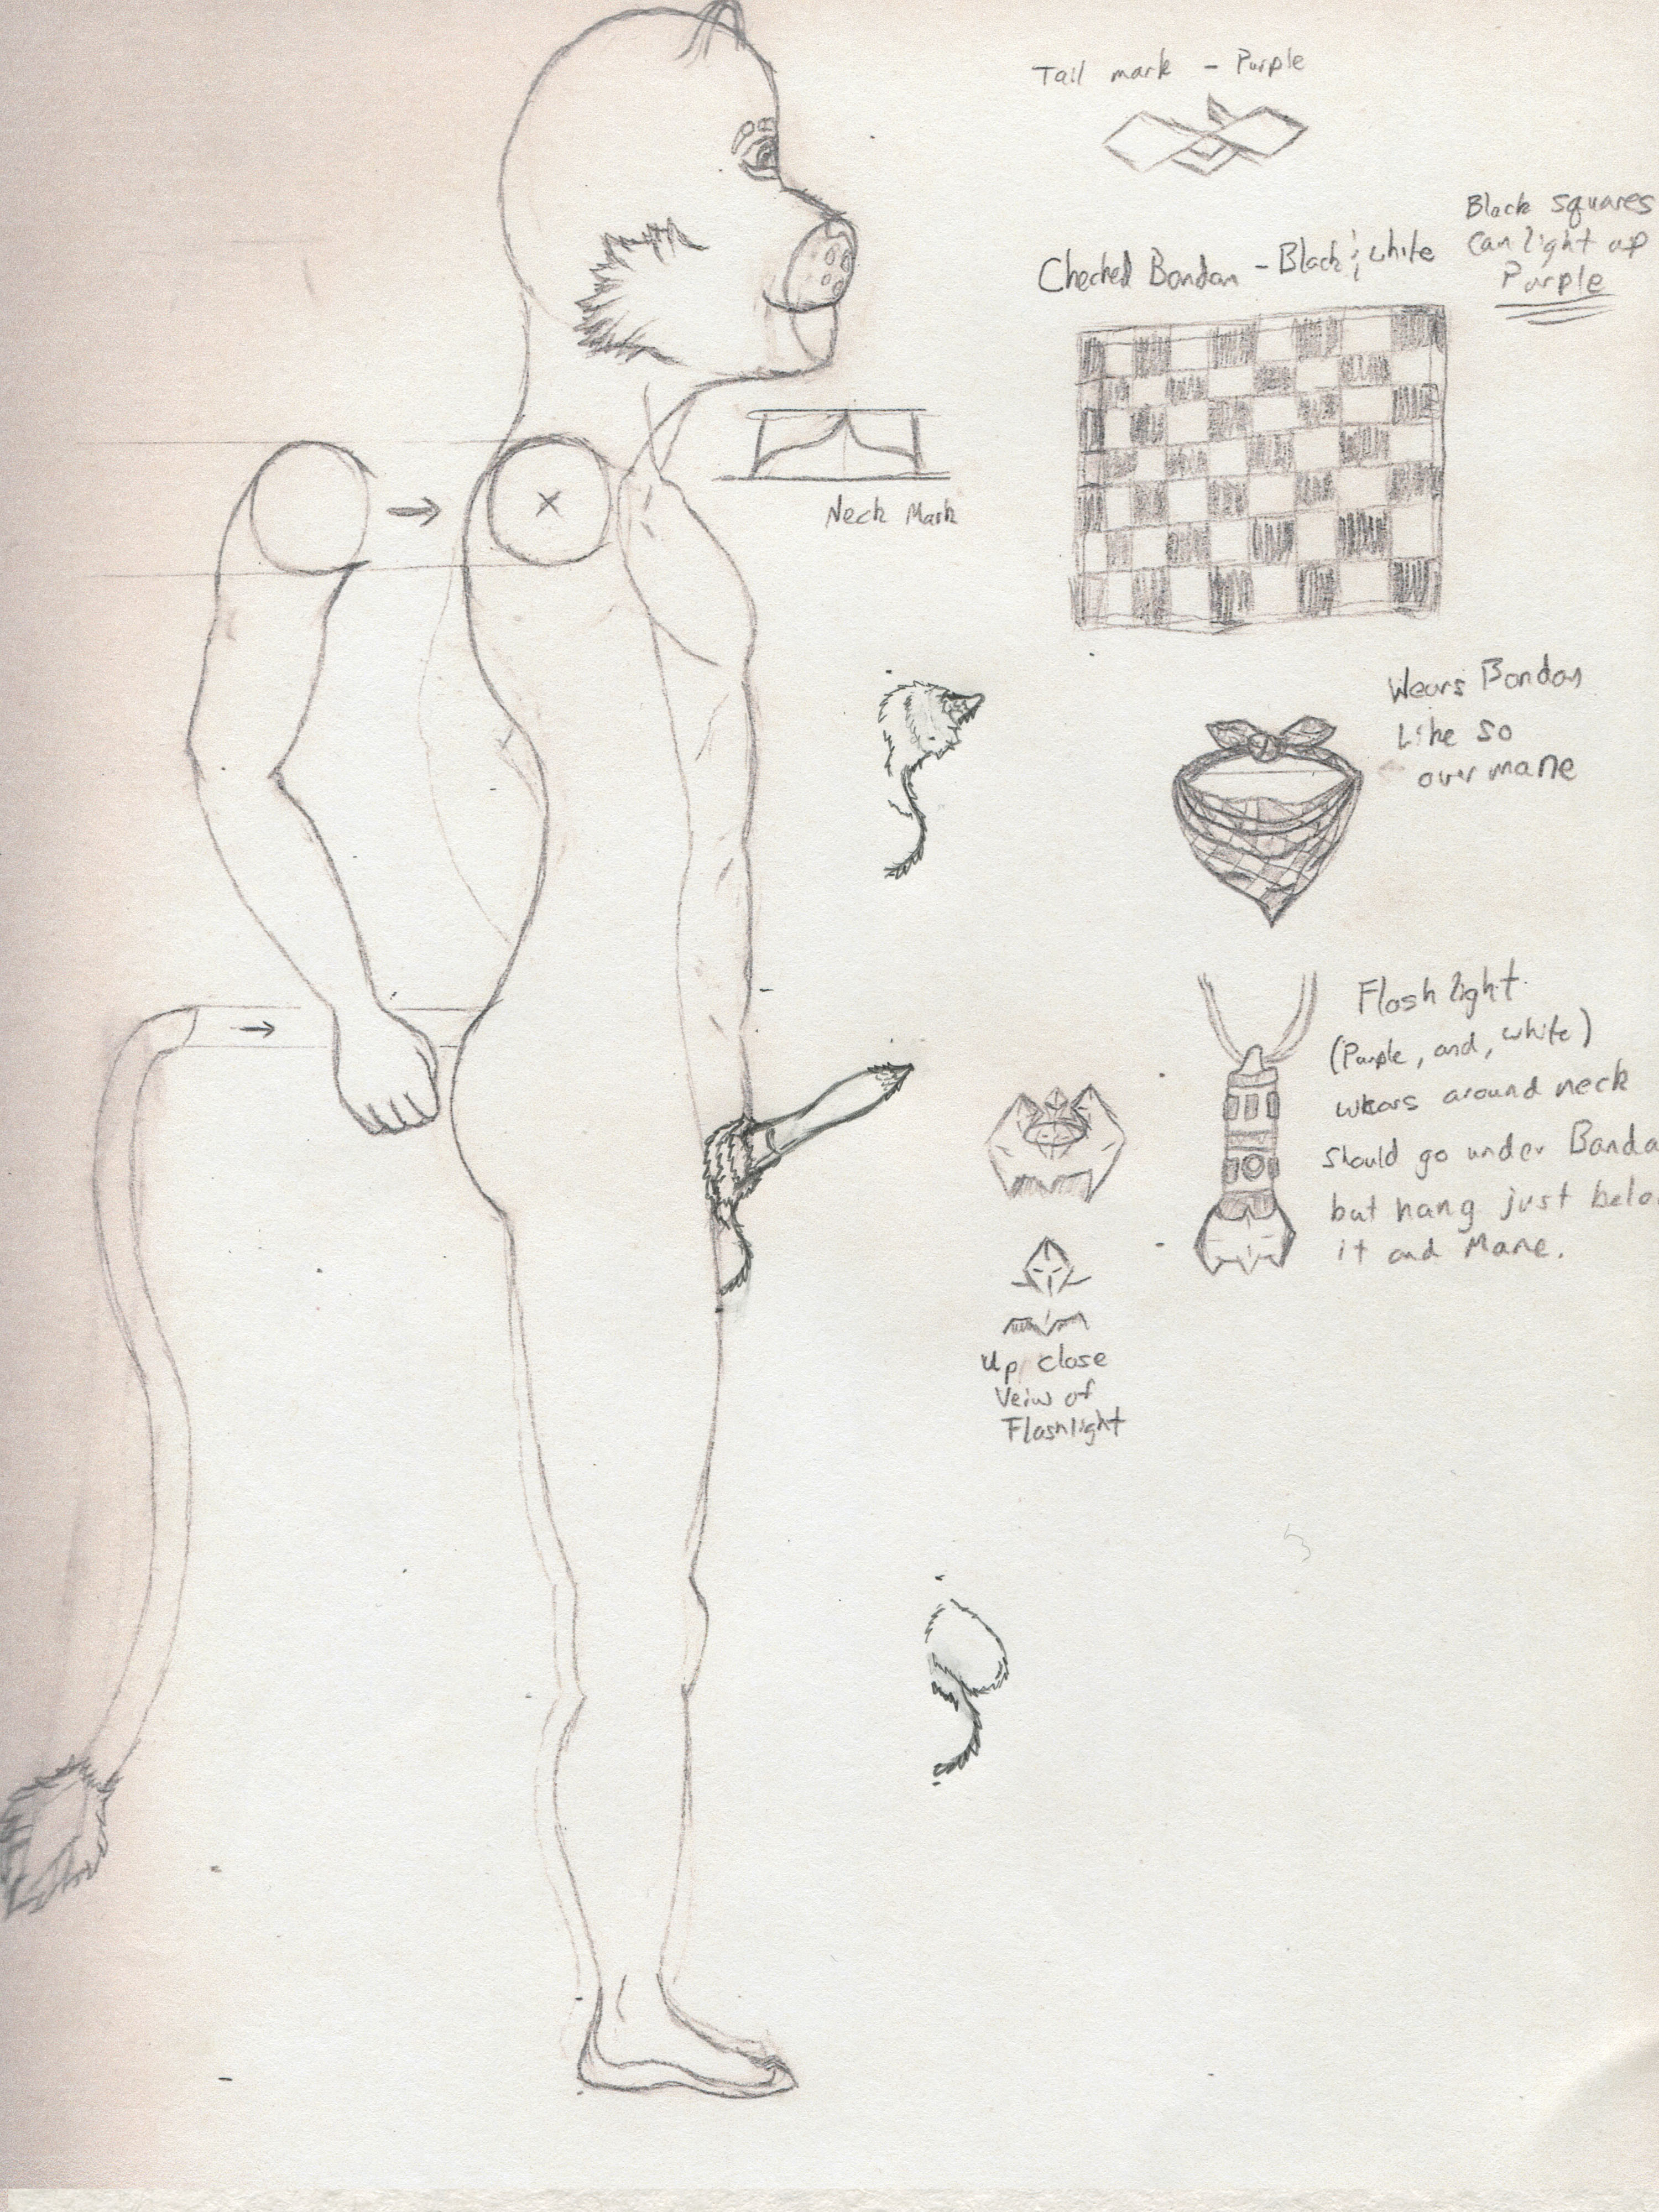 Tail mark - Purple
Black squares
can light up
Purple
Checked Bandan - Black & white
Neck Mark
Wears Bandan
Like so
over mane
Flashlight
(Purple, and, white)
wears around neck
should go under Banda
but hang just belo
it and Mane.
Up close
Veiw of
Flashlight